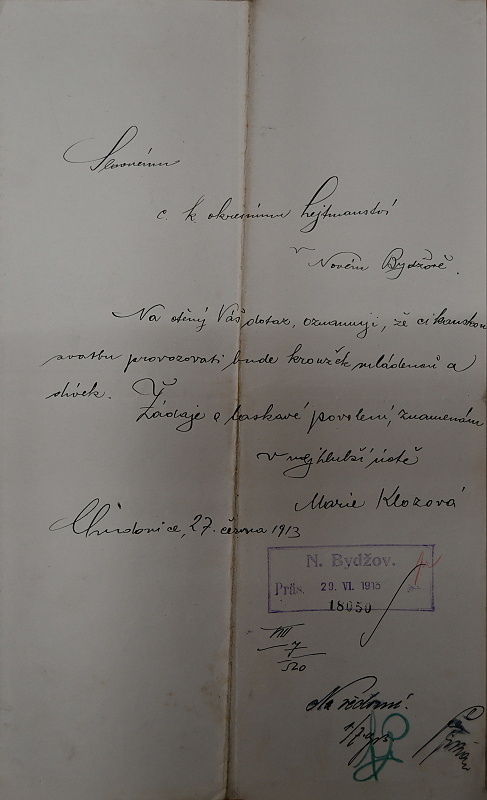 Slavnému
c. k okresnímu hejtmanství
v
Novém Bydžově.
Na ctěný Váš dotaz, oznamuji, že cikanskou
svatbu provozovati bude kroužek mládenců a
dívek.
Žádaje o laskavé povolení, znamenám
v nejhlubší úctě
Marie Klozová
27. června 1913
N. Bydžov.
Präs. 29. VI. 1913
18050
VIII
7
520
Na vědomí.